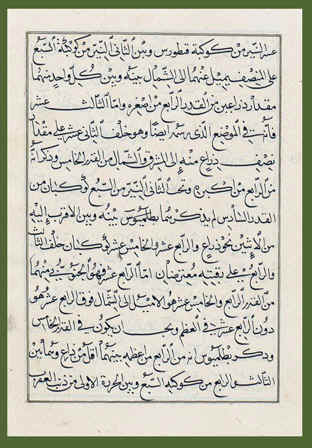 عشر النير من كوكبة قنطورس وبين الثاني النير من كوكبة السبع
على المنتصف يميل عنهما الى الشمال بينه وبين كل واحد منهما
مقدار ذراعين من القدر الرابع من اصغره واما الثالث عشر
فانه في الموضع الذي رسم ايضا وهو خلف الثاني عشر على مقدار
نصف ذراع منه الى المشرق والشمال من القدر الخامس وذكر انه
من الرابع من اكبره وتحت الثاني النير من السبع كوكبان من
القدر السادس لم يذكرهما بطلميوس بينه وبين الاقرب اليه
من الاثنين نحو ذراع والرابع عشر والخامس عشر كوكبان خلف الثالث
والرابع على بقيته معترضان اما الرابع عشر فهو الجنوبي منهما
من القدر الرابع والخامس عشر هو الاميل الى الشمال فوق الرابع عشر وهو
دون الرابع عشر في العظم ويجب ان يكون في القدر الخامس
وذكر بطلميوس انه من الرابع من اعظمه بينهما اقل من ذراع وهما بين
الثالث والرابع من كوكبة السبع وبين الخرزة الاولى من ذنب العقرب